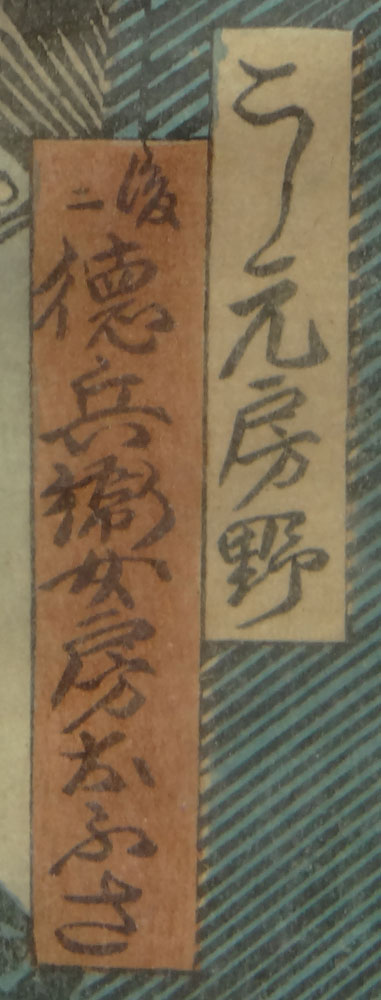 こし元房野
後ニ
徳兵衛女房おふさ